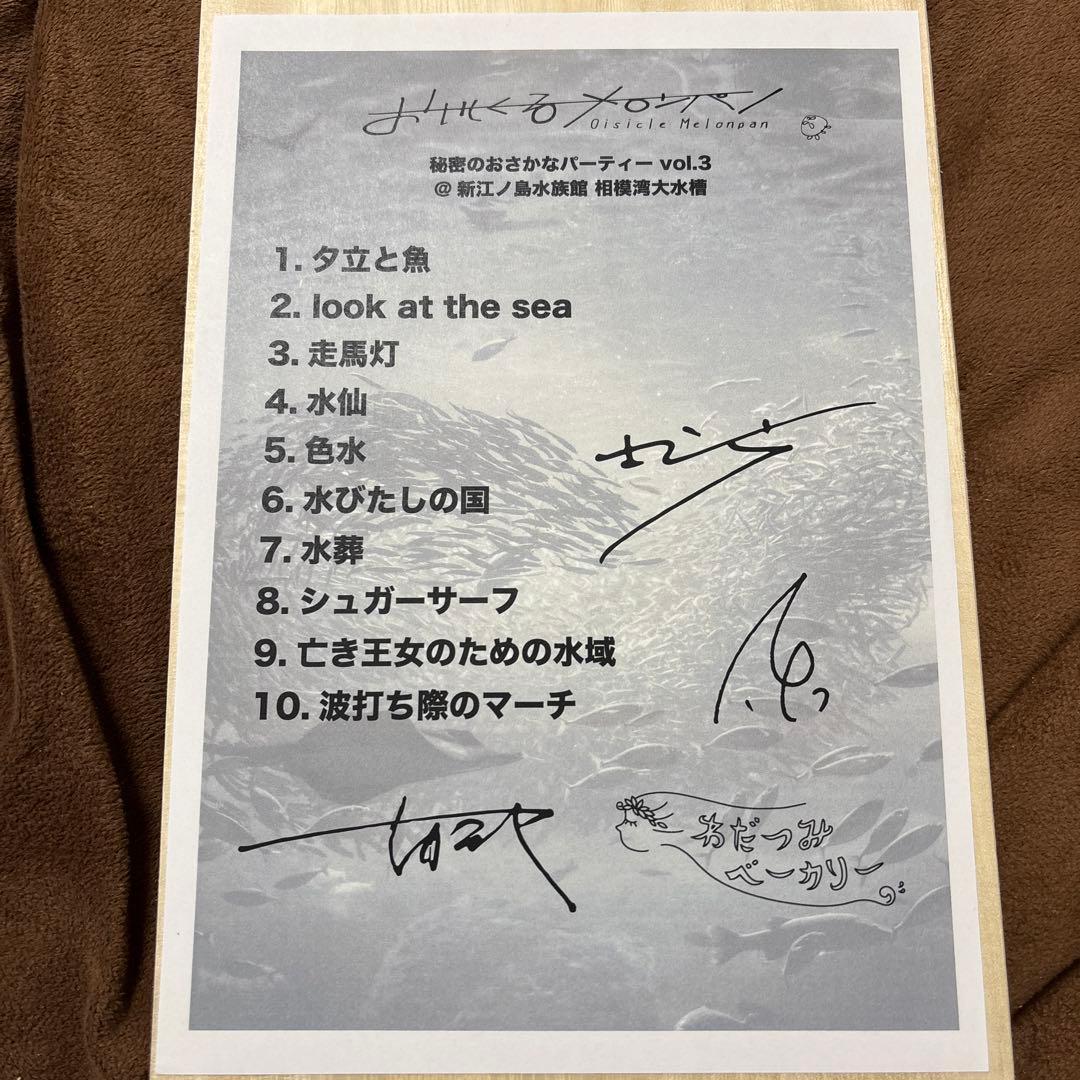 おいしくるメロンパン
Oisicle Melonpan
秘密のおさかなパーティー vol.3
@ 新江ノ島水族館 相模湾大水槽
1. 夕立と魚
2. look at the sea
3. 走馬灯
4. 水仙
5. 色水
6. 水びたしの国
7. 水葬
8. シュガーサーフ
9. 亡き王女のための水域
10. 波打ち際のマーチ
わだつみ
ベーカリー